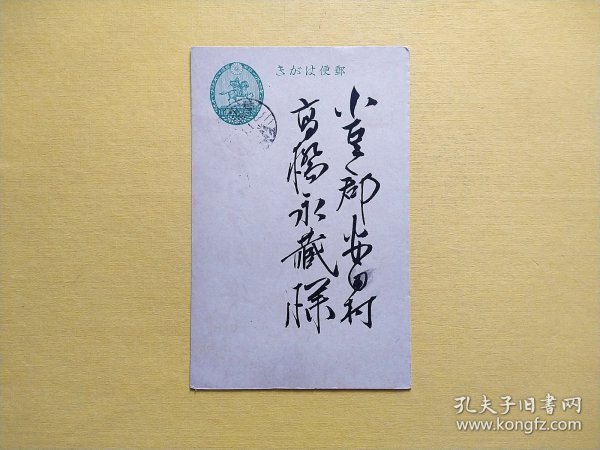 郵便はがき
小豆郡安田村
高橋永蔵様
孔夫子旧书网
www.kongfz.com